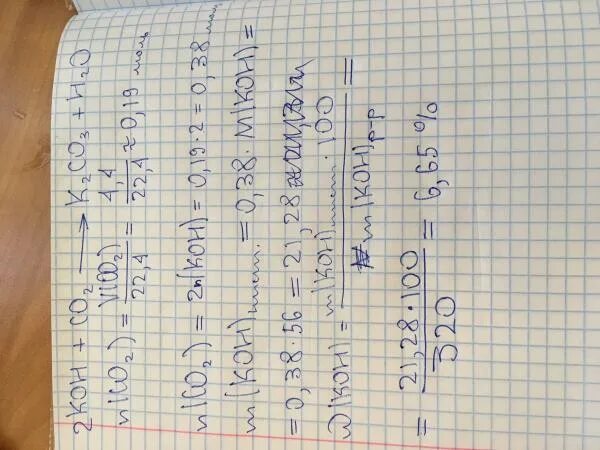 2KOH + CO₂ ⟶ K₂CO₃ + H₂O
n(CO₂) = V(CO₂)/22,4 = 4,4/22,4 ≈ 0,19 моль
n(CO₂) = 2n(KOH) = 0,19·2 = 0,38 моль
m(KOH)чист. = 0,38 · M(KOH) =
= 0,38 · 56 = 21,28
ω(KOH) = m(KOH)чист. · 100 / m(KOH)р-р =
= 21,28 · 100 / 320 = 6,65 %